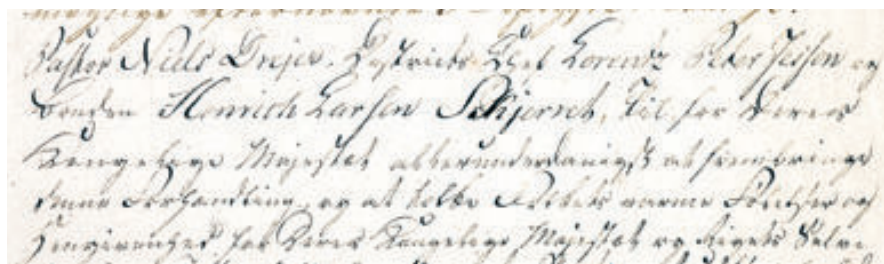 Pastor Niels Drejer, Districts Chef Lorentz Peter Jessen og
Bonden Henrich Larsen Skjerret, til for Deres
Kongelige Majestæt allerunderdanigst at frembringe
denne Forhandling, og at tolke Folkets varme Følelser og
Hengivenhed for Deres Kongelige Majestæt og Rigets Selv